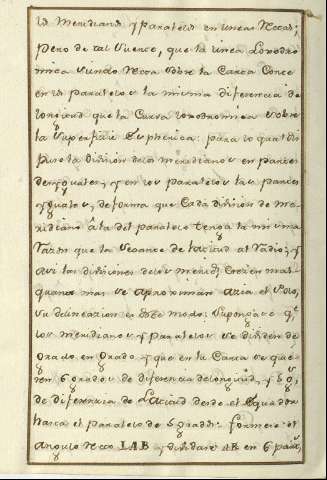 los Meridianos y Paralelos en lineas Rectas;
pero de tal suerte, que la linea Loxodro
mica siendo Recta sobre la Carta Corte
en los paralelos la misma diferencia de
longitud que la Curva loxodromica sobre
la superficie Spherica: para lo qual dis
puso la division de los meridianos en partes
desyguales, y en los paralelos las partes
yguales, de forma que Cada division de me
ridiano â la del paralelo tenga la misma
razon que la secante de latitud al radio; y
asi las divisiones de los merid.s Crecen mas
quanto mas se aproximan azia el Polo,
su delineacion es de este modo: Supongase q.e
los meridianos y Paralelos se dividen de
grado en grado, y que en la Carta se quie
ren 6 grados de diferencia de longitud, y 6 g.s
de diferencia de Latitud desde el Equador
hasta el paralelo de 6 grad.s: formese el
angulo Recto LAB y dividase AB en 6 part.s